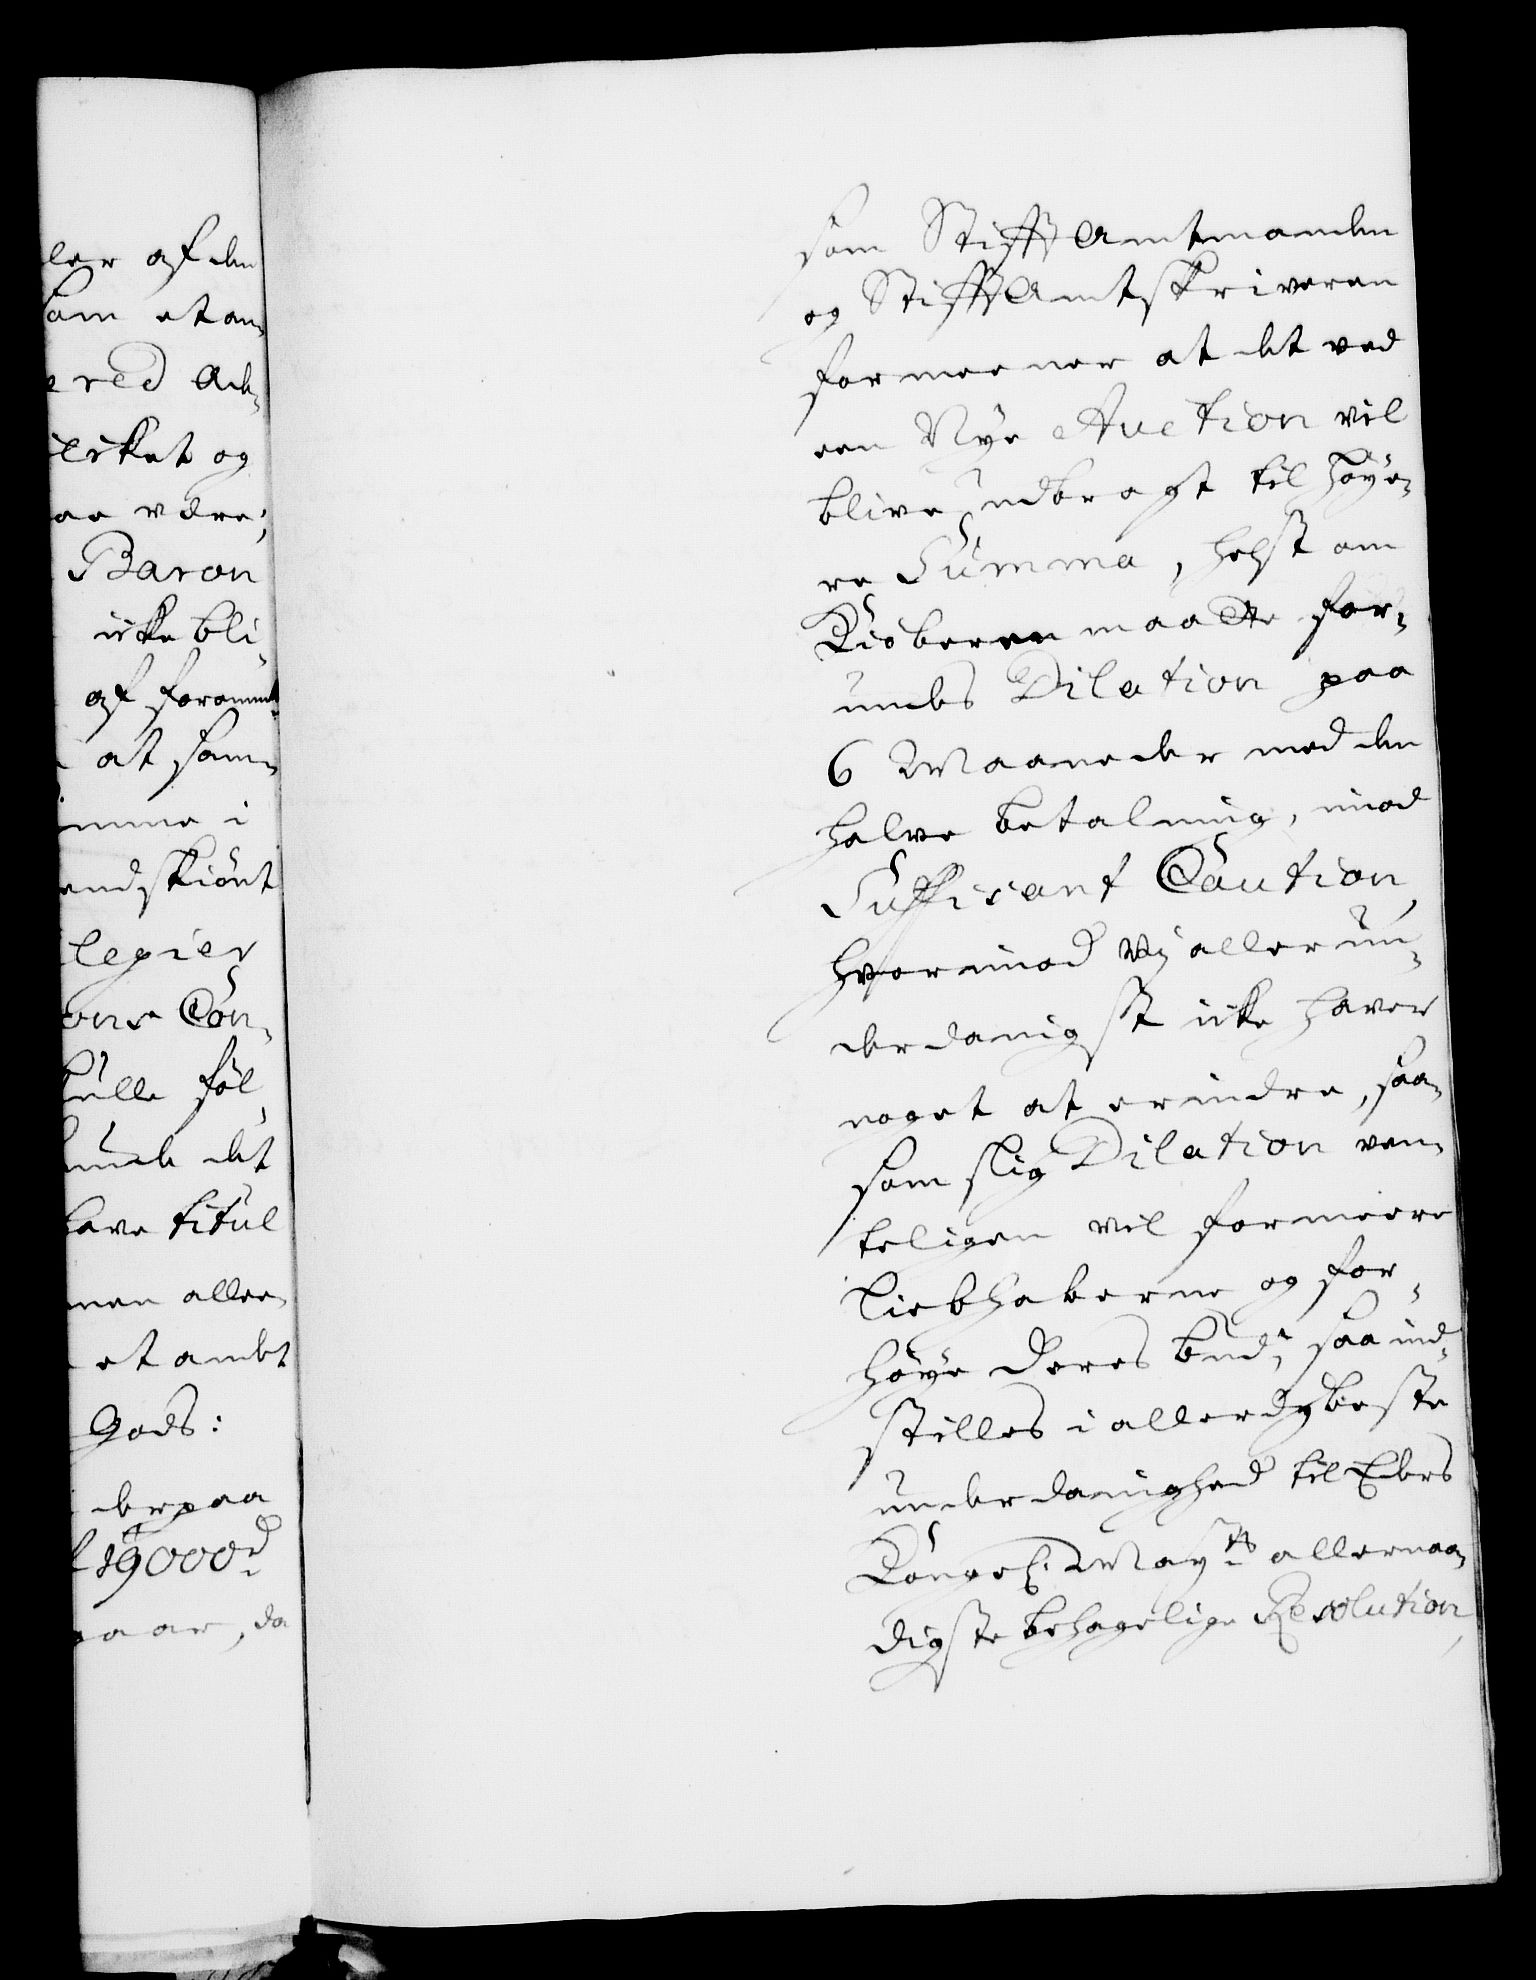 ler af den
som et an-
red Ad-
isket og
aa være;
Baron
icke bli-
af foromm
at sam-
imme i
endskiönt
legier
ons Con-
skulle fol-
kunde det
have titul
men allee-
et andet
Gods:
derpaa
19000 d
paar, da
som StiftsAmtmanden
og StiftsAmtskriveren
formeener at det ved
een Nye Auction vil
blive udbragt til höye-
re Summa, helst om
Kiöberen maatte for-
undes Dilation paa
6 Maaneder med den
halve betalning, imod
Suffisant Caution,
hvorimod Vj allerun-
derdanigst icke haver
noget at erindre, saa-
som slig Dilation ven-
teligen vil formeere
Liebhaberne og for-
höye deres bud; saa ind-
stilles i allerdybeste
underdanighed til Eders
Kongel: Mayts allernaa-
digste behagelige Resolution,